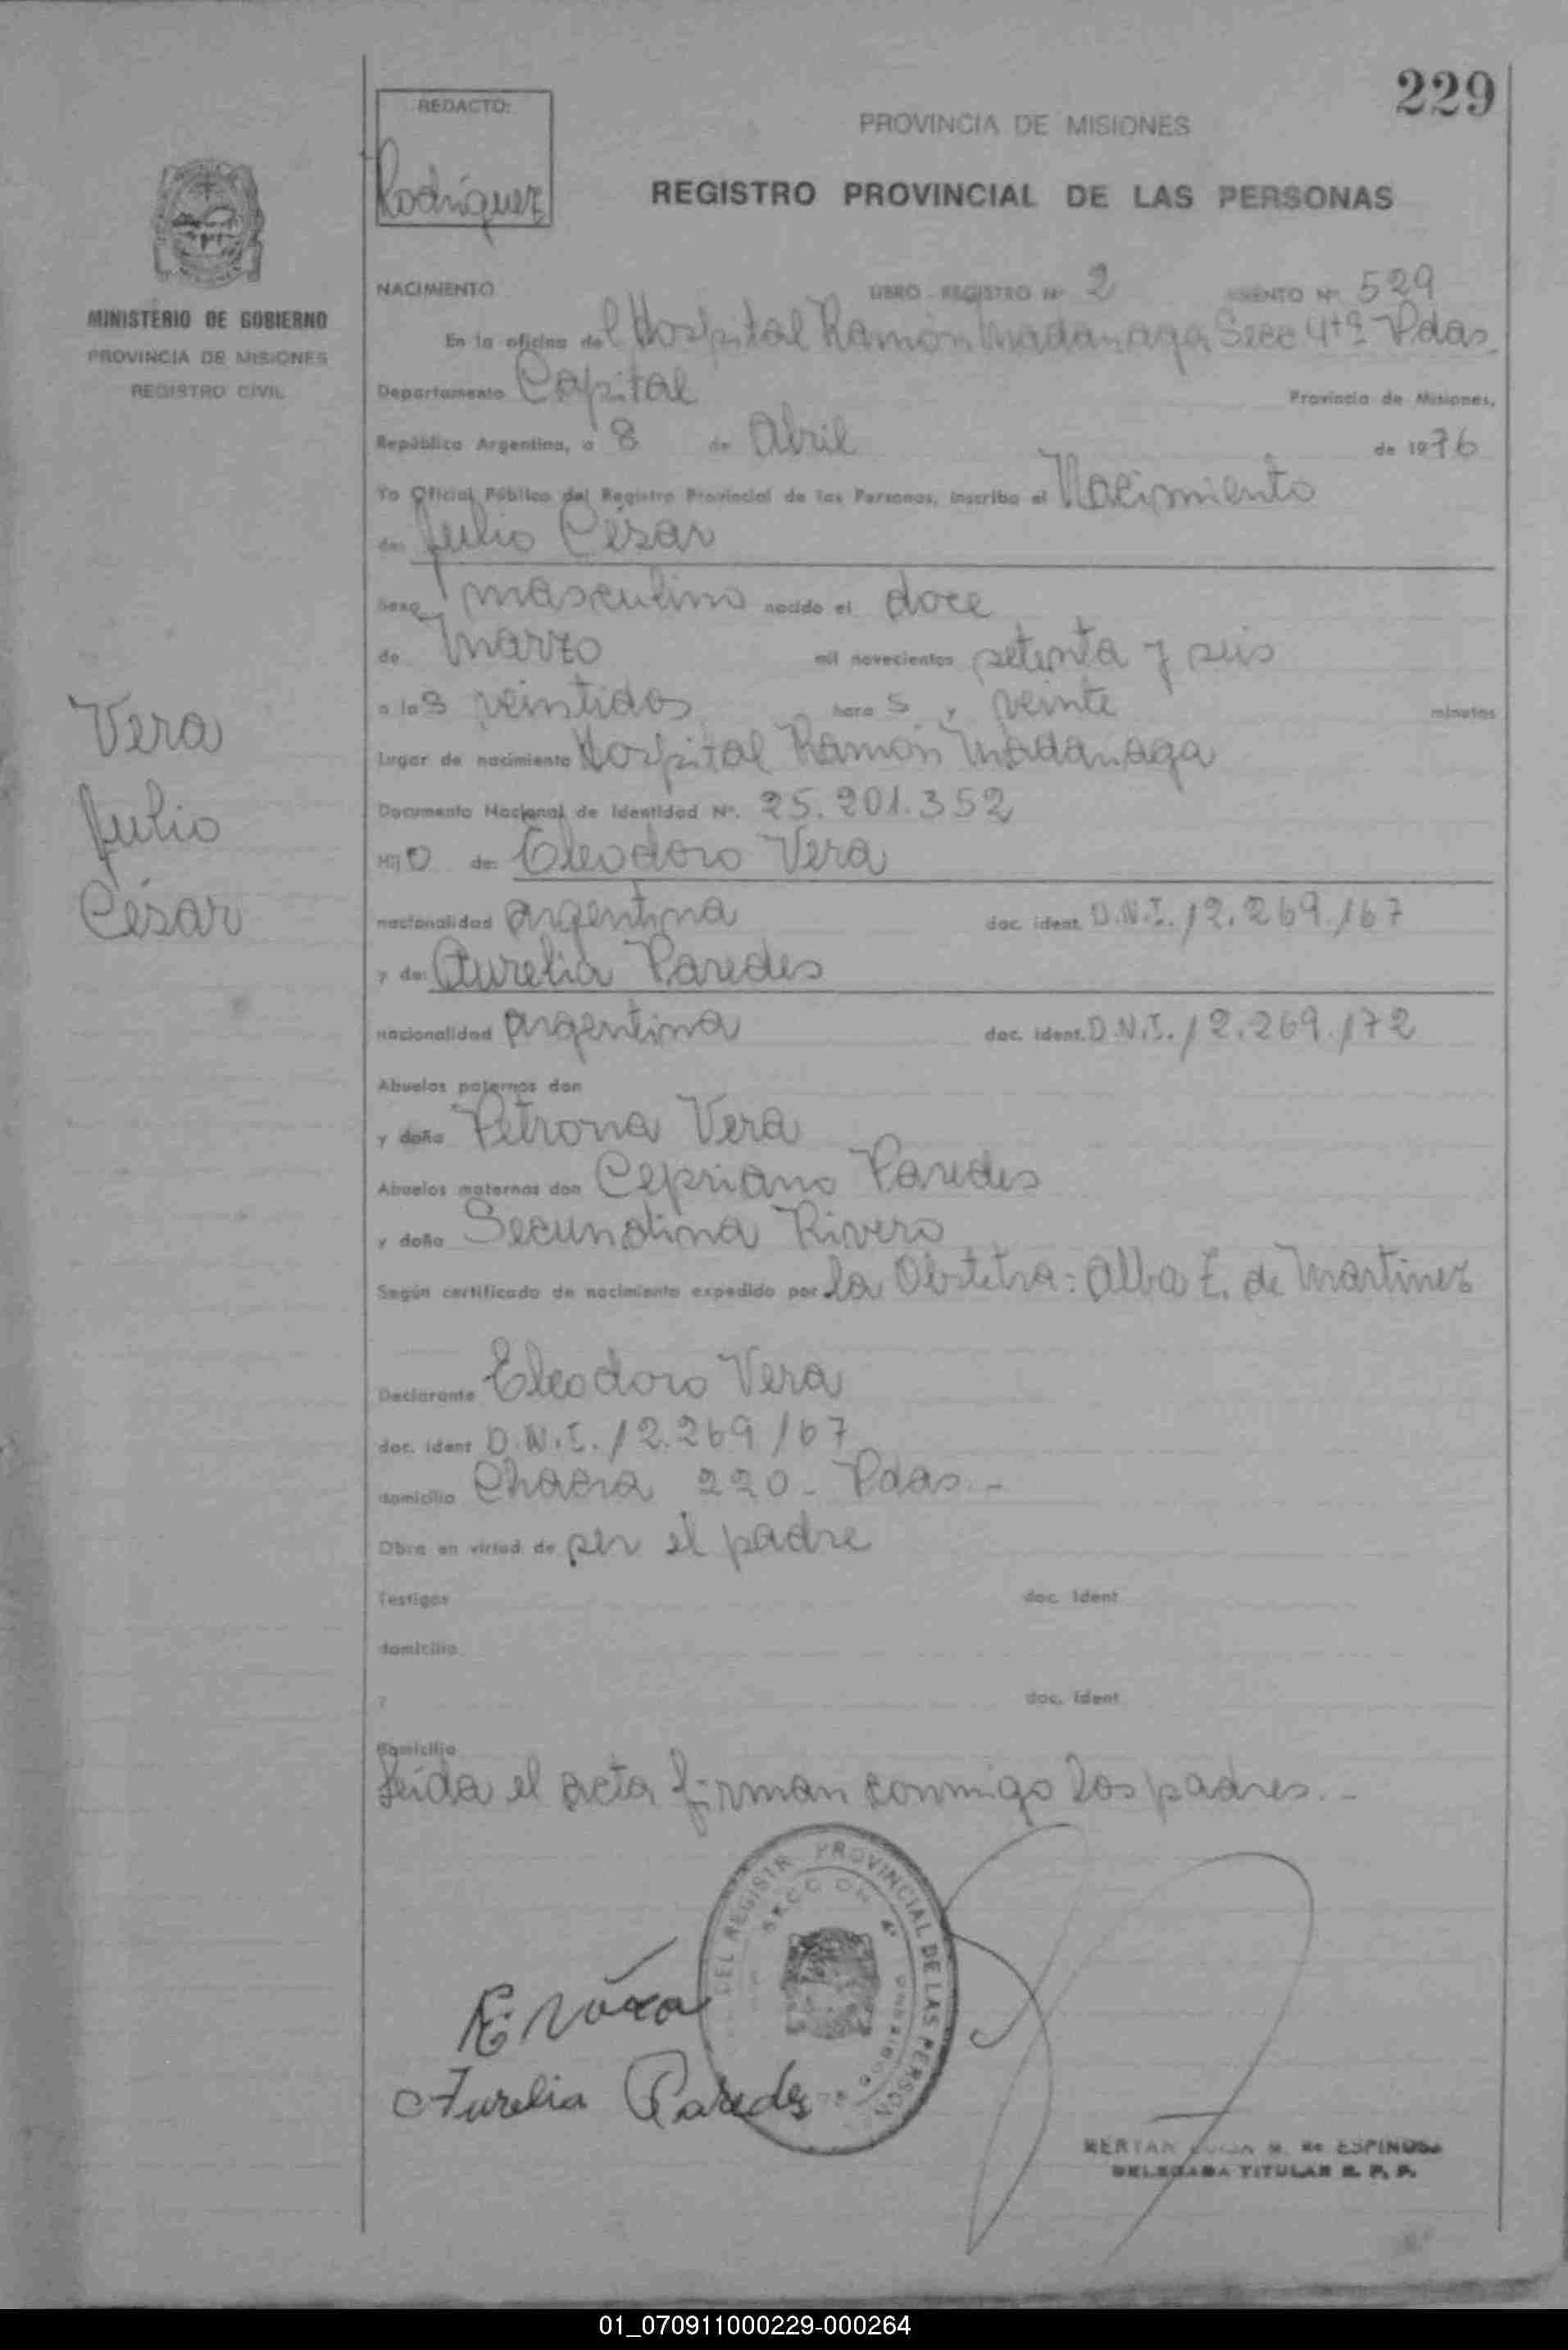 229
REDACTO:
Rodríguez
PROVINCIA DE MISIONES
REGISTRO PROVINCIAL DE LAS PERSONAS
MINISTERIO DE GOBIERNO
PROVINCIA DE MISIONES
REGISTRO CIVIL
Vera
Julio
César
NACIMIENTO LIBRO - REGISTRO Nº 2 ASIENTO Nº 529
En la oficina del Hospital Ramón Madariaga Secc 4ta Pdas.
Departamento Capital Provincia de Misiones,
República Argentina, a 8 de Abril de 1976
Yo Oficial Público del Registro Provincial de las Personas, inscribo el Nacimiento
de: Julio César
Sexo masculino nacido el doce
de Marzo mil novecientos setenta y seis
a las veintidos horas y veinte minutos
Lugar de nacimiento Hospital Ramón Madariaga
Documento Nacional de Identidad Nº. 25.201.352
Hijo de: Eleodoro Vera
nacionalidad argentina doc. ident. D.N.I. 12.269.167
y de: Aurelia Paredes
nacionalidad argentina doc. ident. D.N.I. 12.269.172
Abuelos paternos don
y doña Petrona Vera
Abuelos maternos don Cepriano Paredes
y doña Secundina Rivero
Según certificado de nacimiento expedido por la Obstetra: Alba E. de Martinez
Declarante Eleodoro Vera
doc. ident D.N.I. 12.269167
domicilio Chacra 220 - Pdas. -
Obra en virtud de ser el padre
Testigos doc. ident
domicilio
y doc. ident
domicilio
Leída el acta firman conmigo los padres. -
DEL REGISTR PROVINCIAL DE LAS PERSON
SECCION 4ª
E. Vera
Aurelia Paredes
M. de ESPINOSA
DELEGADA TITULAR R. P. P.
01_070911000229-000264